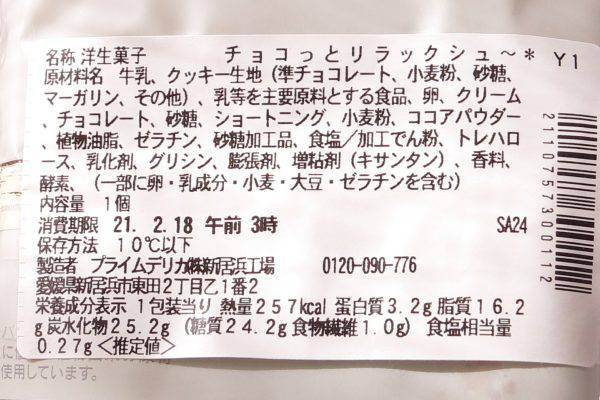 名称 洋生菓子 チョコっとリラックシュ～* Y1
原材料名 牛乳、クッキー生地（準チョコレート、小麦粉、砂糖、
マーガリン、その他）、乳等を主要原料とする食品、卵、クリーム
、チョコレート、砂糖、ショートニング、小麦粉、ココアパウダー
、植物油脂、ゼラチン、砂糖加工品、食塩／加工でん粉、トレハロ
ース、乳化剤、グリシン、膨張剤、増粘剤（キサンタン）、香料、
酵素、（一部に卵・乳成分・小麦・大豆・ゼラチンを含む）
内容量 1個
消費期限 21. 2.18 午前 3時 SA24
保存方法 10℃以下
製造者 プライムデリカ㈱新居浜工場 0120-090-776
愛媛県新居浜市東田2丁目乙1番2
栄養成分表示 1包装当り 熱量257kcal 蛋白質3.2g 脂質16.2
g 炭水化物25.2g （糖質24.2g 食物繊維1.0g） 食塩相当量
0.27g＜推定値＞
2110757300112
使用しています。